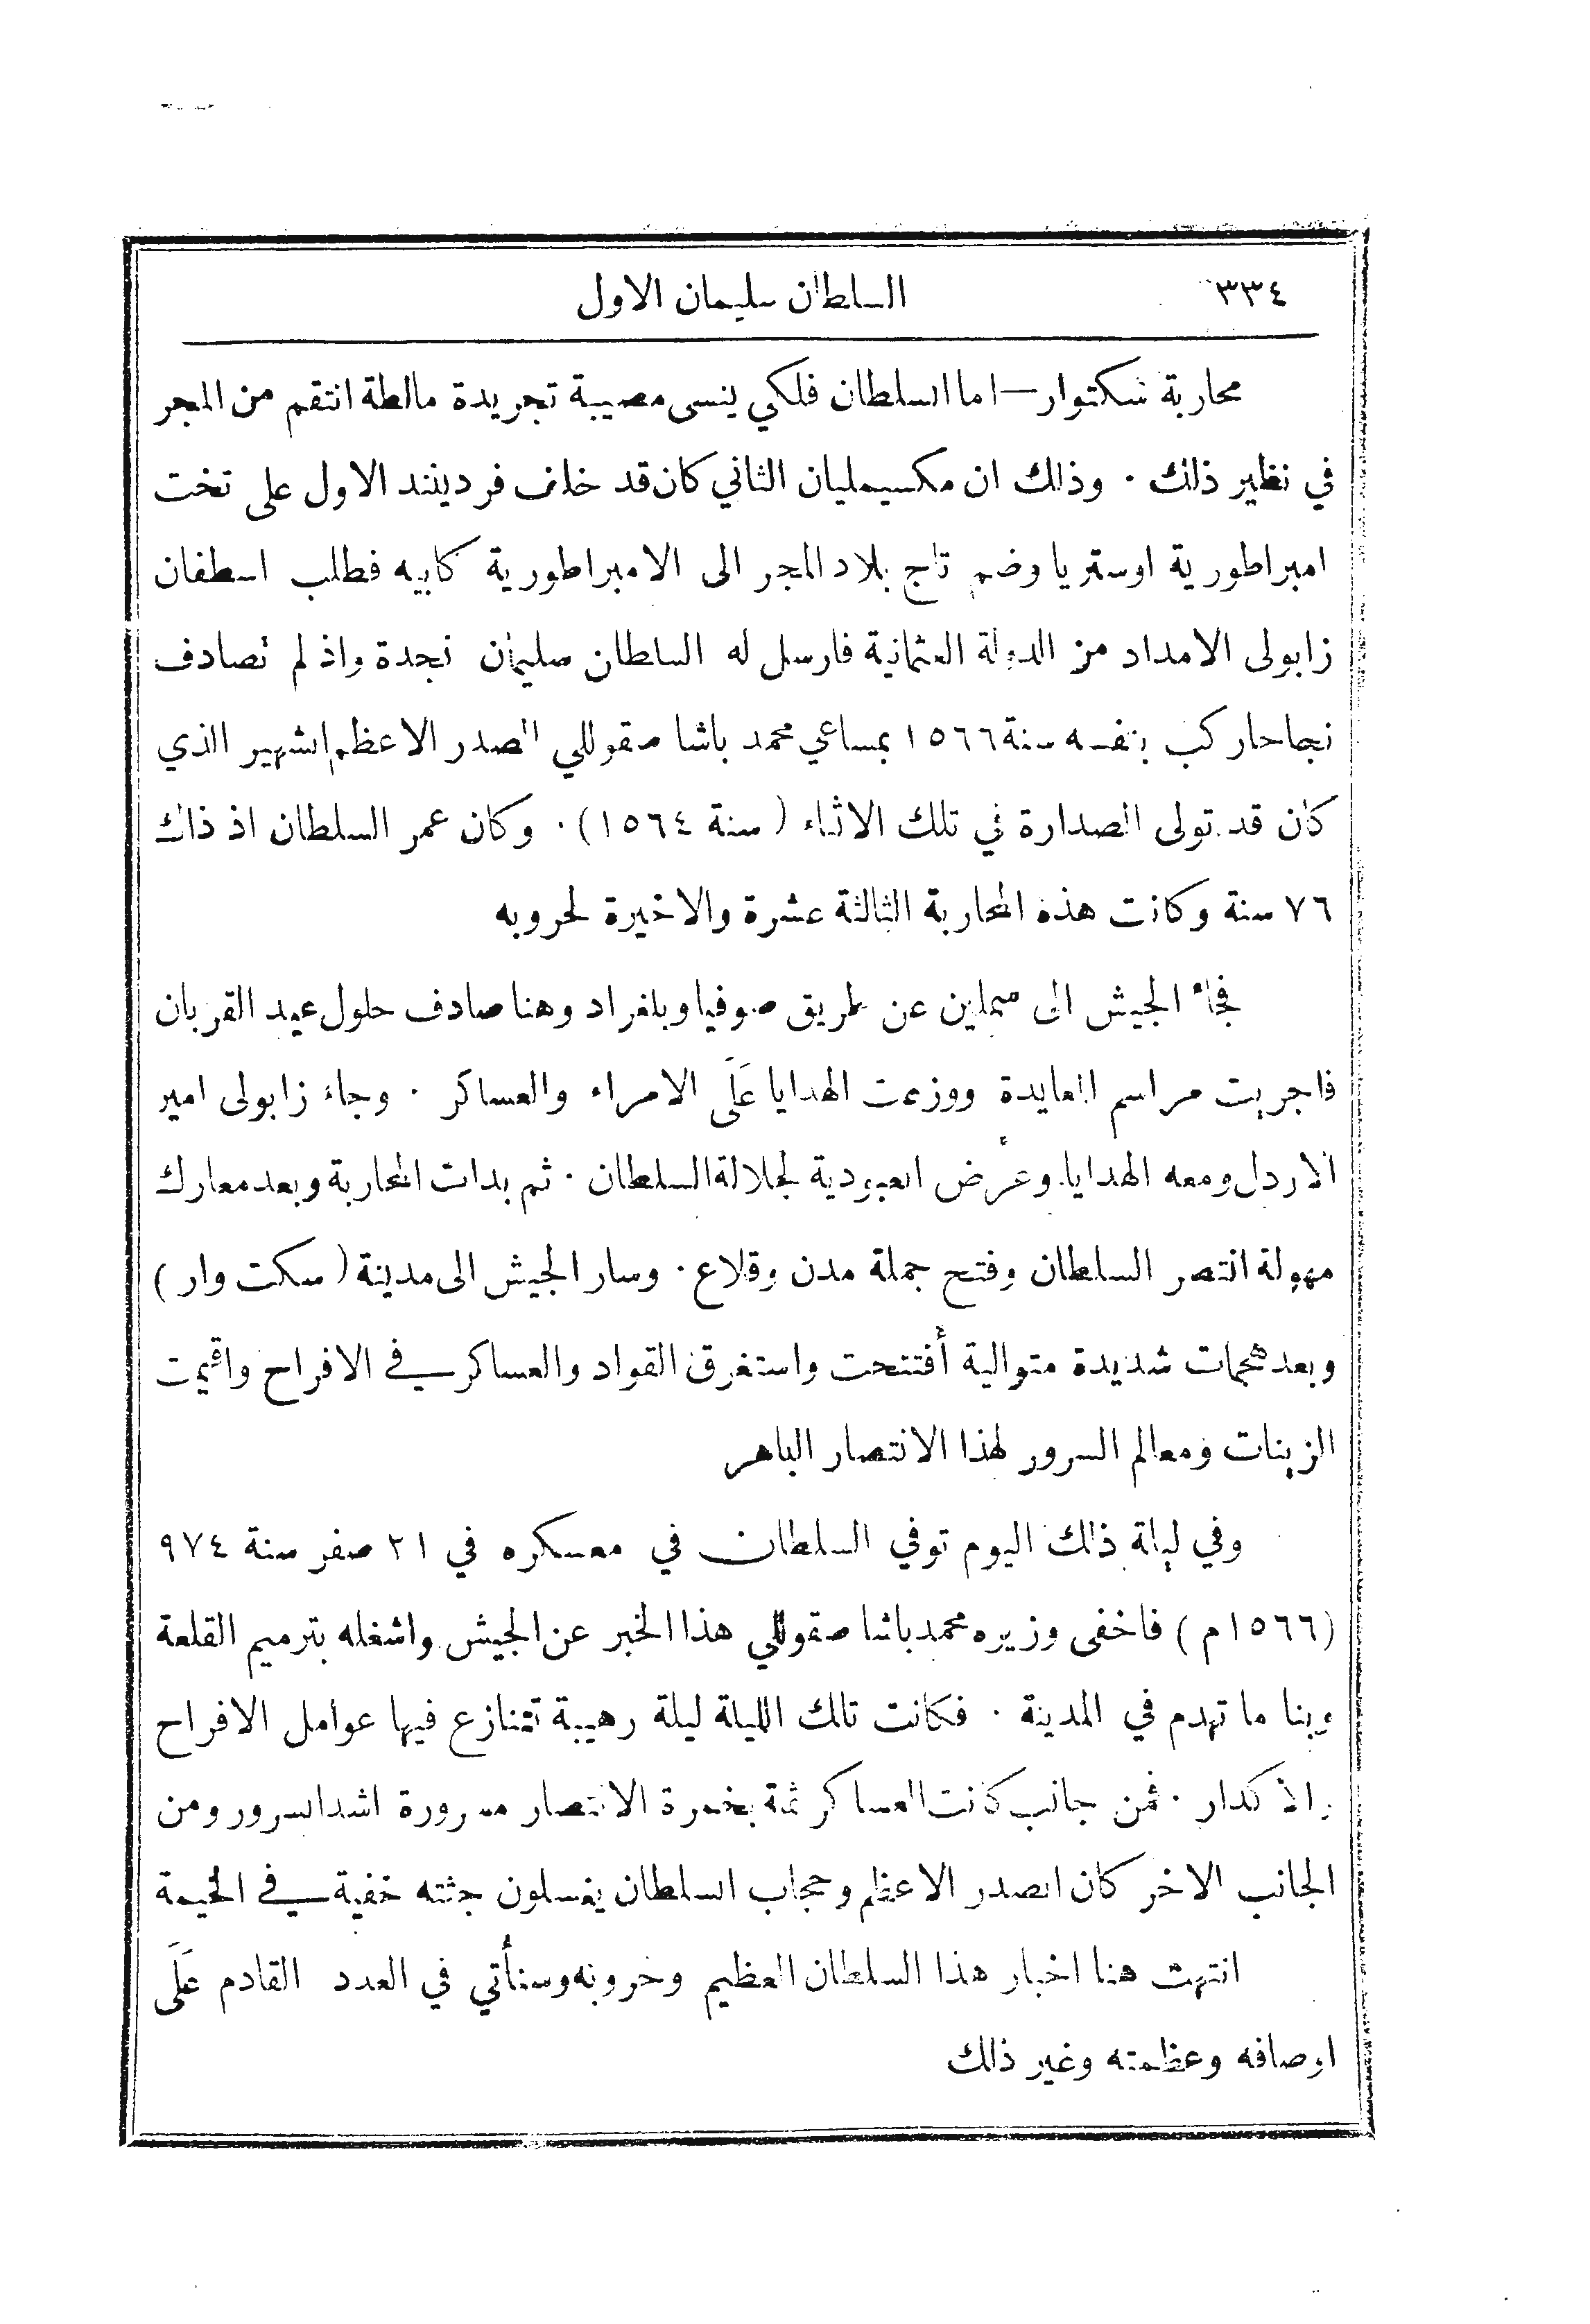 ٣٣٤
السلطان سليمان الاول
محاربة سكتوار — اما السلطان فلكي ينسى مصيبة تجريدة مالطة انتقم من المجر
في نظير ذلك . وذلك ان مكسيمليان الثاني كان قد خلف فردينند الاول على تخت
امبراطورية اوستريا وضم تاج بلاد المجر الى الامبراطورية كابيه فطلب اسطفان
زابولى الامداد من الدولة العثمانية فارسل له السلطان سليمان نجدة واذ لم تصادف
نجاحا ركب بنفسه سنة ١٥٦٦ بمساعي محمد باشا صقوللي الصدر الاعظم الشهير الذي
كان قد تولى الصدارة في تلك الاثناء ( سنة ١٥٦٤ ) . وكان عمر السلطان اذ ذاك
٧٦ سنة وكانت هذه المحاربة الثالثة عشرة والاخيرة لحروبه
فجاء الجيش الى سملين عن طريق صوفيا وبلغراد وهنا صادف حلول عيد القربان
فاجريت مراسم المعايدة ووزعت الهدايا عَلَى الامراء والعساكر . وجاء زابولى امير
الاردل ومعه الهدايا وعرض العبودية لجلالة السلطان . ثم بدات المحاربة وبعد معارك
مهولة انتصر السلطان وفتح جملة مدن وقلاع . وسار الجيش الى مدينة ( سكت وار )
وبعد هجمات شديدة متوالية أفتتحت واستغرق القواد والعساكر في الافراح واقيمت
الزينات ومعالم السرور لهذا الانتصار الباهر
وفي ليلة ذلك اليوم توفي السلطان في معسكره في ٢١ صفر سنة ٩٧٤
( ١٥٦٦ م ) فاخفى وزيره محمد باشا صقوللي هذا الخبر عن الجيش واشغله بترميم القلعة
وبنا ما تهدم في المدينة . فكانت تلك الليلة ليلة رهيبة تتنازع فيها عوامل الافراح
والاكدار . فمن جانب كانت العساكر ثملة بخمرة الانتصار مسرورة اشد السرور ومن
الجانب الاخر كان الصدر الاعظم وحجاب السلطان يغسلون جثته خفية في الخيمة
انتهت هنا اخبار هذا السلطان العظيم وحروبه وسنأتي في العدد القادم عَلَى
اوصافه وعظمته وغير ذلك